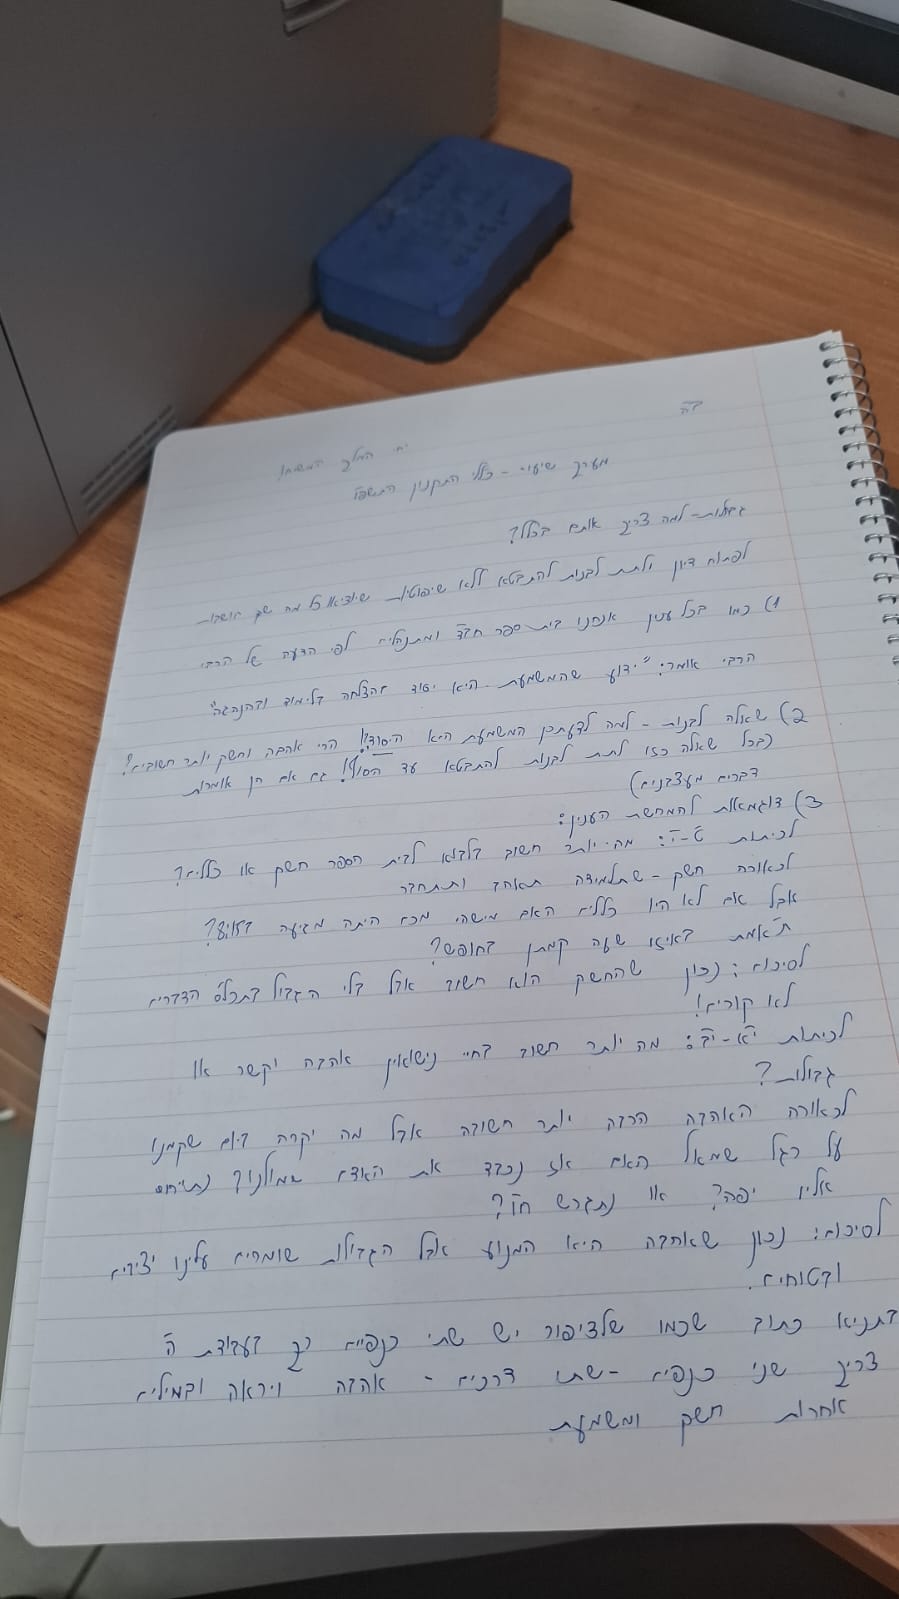 בה
יחי המלך המשיח
מערך שיעור - כללי התקנון התשפו
גבולות - למה צריך אותם בכלל?
לפתוח דיון ולתת לבנות להתבטא ללא שיפוטיות שיוציאו כל מה שהן חושבות
1) כמו בכל ענין אנחנו בית ספר חב"ד ומתנהלים לפי הדעה של הרבי
הרבי אומר: "ידוע שהמשמעת היא יסוד להצלחה בלימוד ובהנהגה"
2) שאלה לבנות - למה לדעתכן המשמעת היא היסוד?! הרי אהבה וחשק יותר חשובים?
(בכל שאלה כזו לתת לבנות להתבטא עד הסוף! גם אם הן אומרות
דברים מעצבנים)
3) דוגמאות להמחשת הענין:
לכיתות ט-י: מה יותר חשוב בלבוא לבית הספר חשק או כללים?
לכאורה חשק - שתלמידה תאהב ותתחבר
אבל אם לא היו כללים האם מישהי מכם היתה מגיעה
ת'אמת באיזו שעה קמתן בחופש?
לסיכום: נכון שהחשק הוא חשוב אבל בלי הגבול בתכל'ס הדברים
לא קורים!
לכיתות י"א-י"ב: מה יותר חשוב בחיי נישואין אהבה וקשר או
גבולות?
לכאורה האהבה הרבה יותר חשובה אבל מה יקרה ביום שקמנו
על רגל שמאל האם אז נכבד את האדם שמולנו? נתייחס
אליו יפה? או נתגרש ח"ו?
לסיכום: נכון שאהבה היא המנוע אבל הגבולות שומרים עלינו יציבים
ובטוחים.
בתניא כתוב שכמו שלציפור יש שתי כנפיים כך בעבודת ה'
צריך שני כנפים - שתי דרכים - אהבה ויראה ובמילים
אחרות חשק ומשמעת